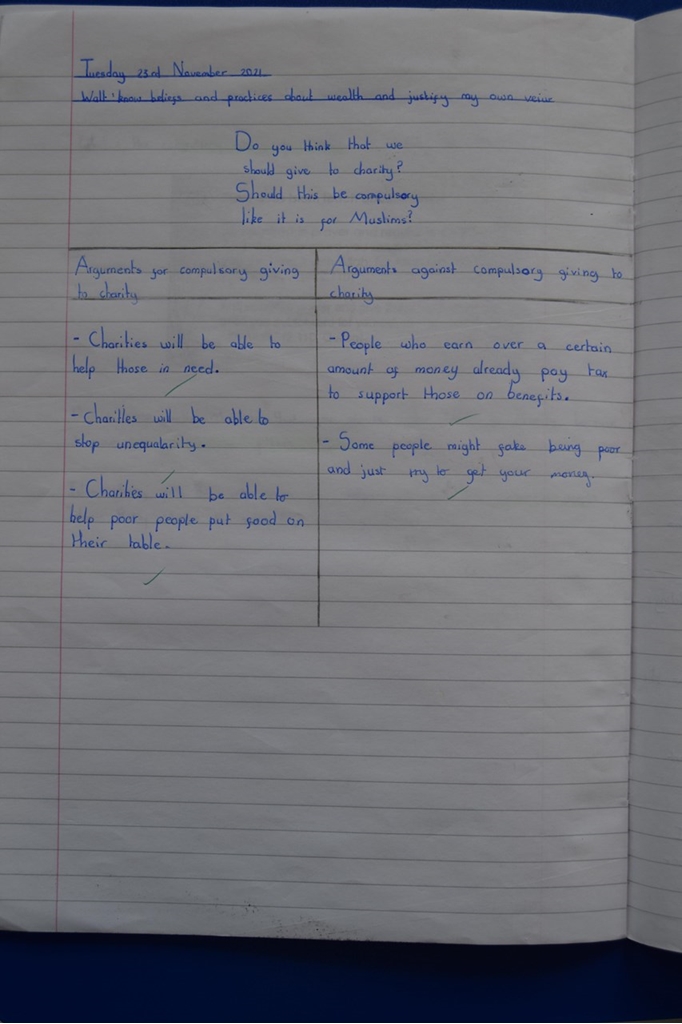 Tuesday 23rd November 2021
Walt: know beliefs and practices about wealth and justify my own veiw
Do you think that we
should give to charity?
Should this be compulsory
like it is for Muslims?
Arguments for compulsory giving
to charity
- Charities will be able to
help those in need.
- Charities will be able to
stop unequalarity.
- Charities will be able to
help poor people put food on
their table.
Arguments against compulsory giving to
charity
- People who earn over a certain
amount of money already pay tax
to support those on benefits.
- Some people might fake being poor
and just try to get your money.